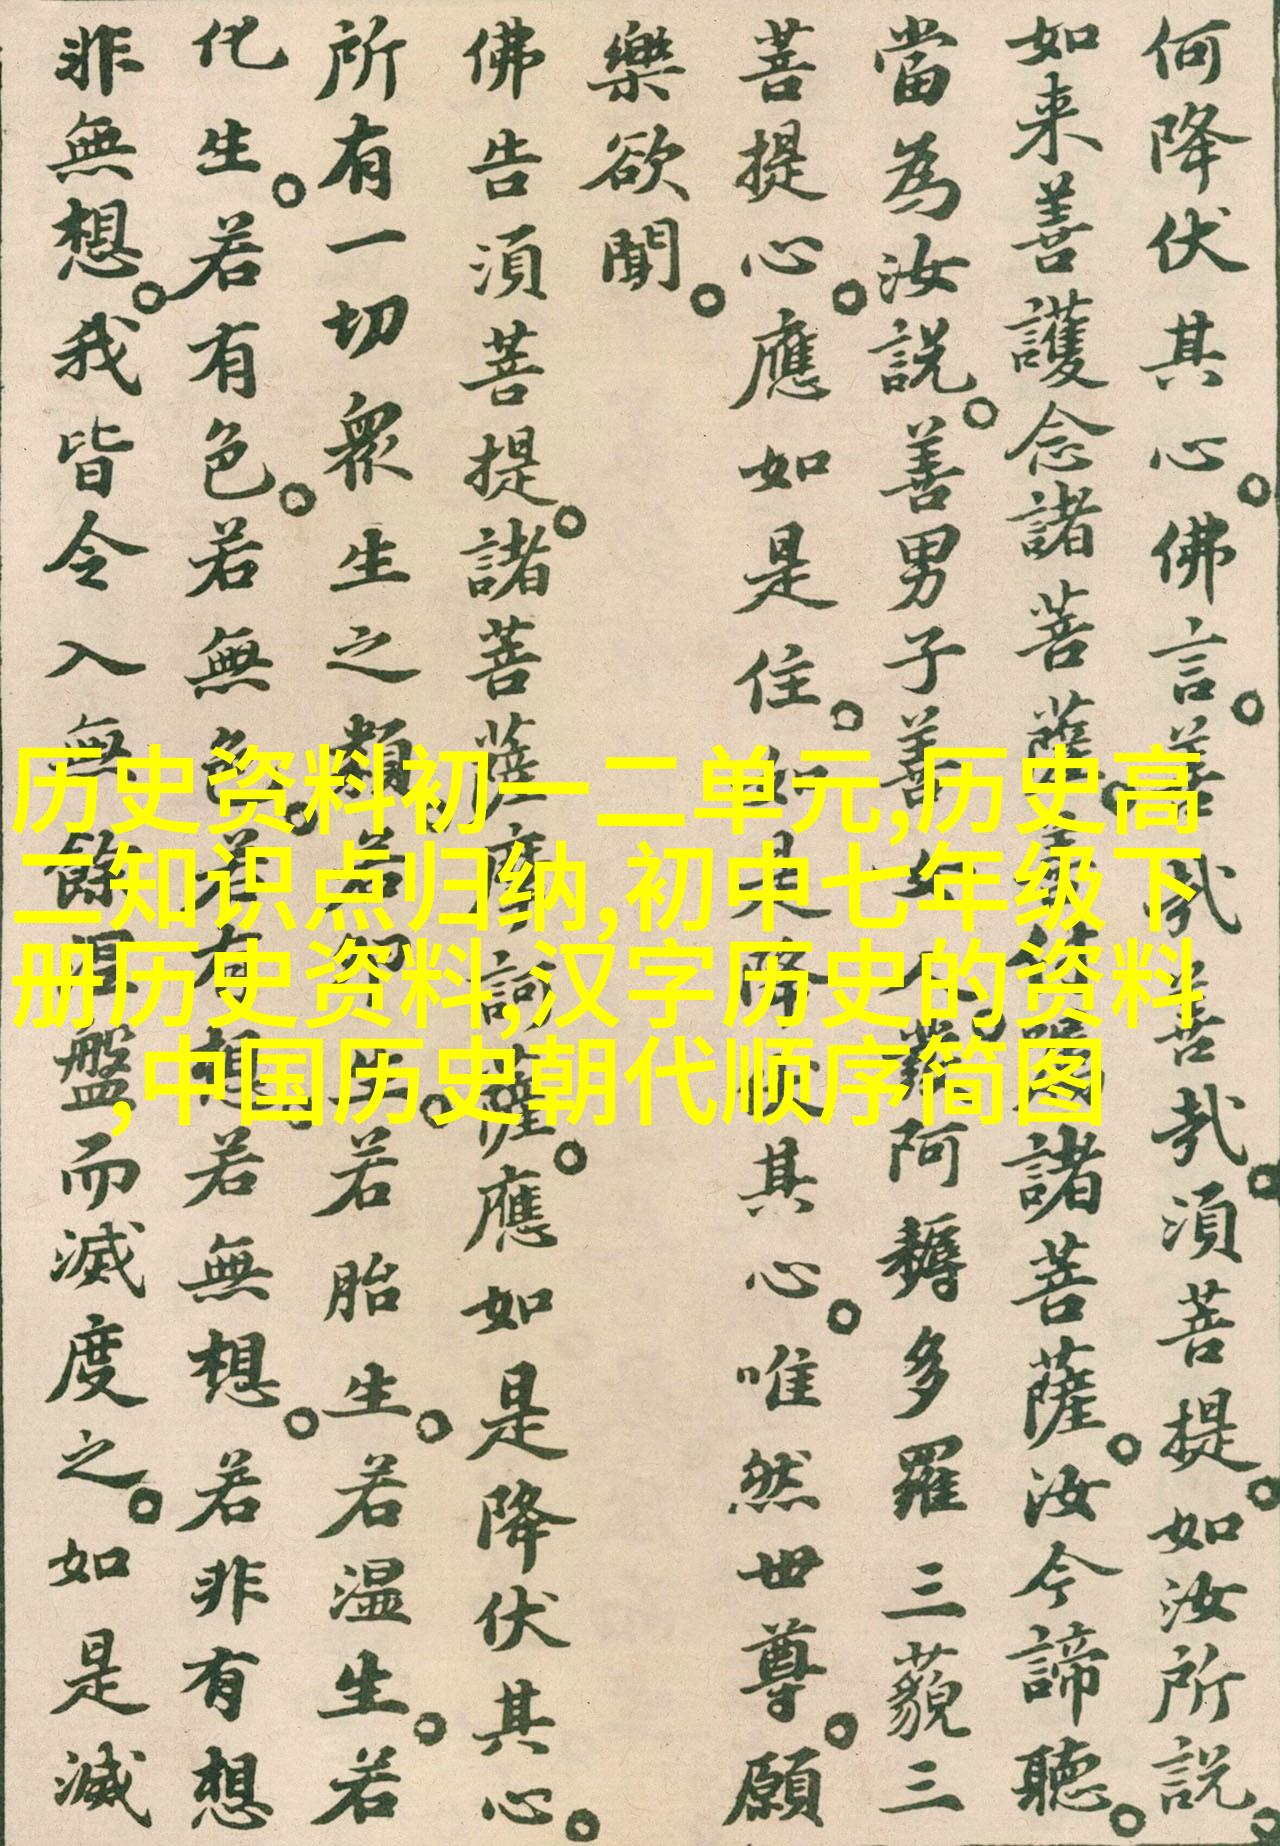 何降伏其心。佛言。善哉善哉。須菩提。如汝所説。
如来善護念諸菩薩。善付囑諸菩薩。汝今諦聽。
當為汝説。善男子善女人。發阿耨多羅三藐三
菩提心。應如是住。如是降伏其心。唯然世尊。願
樂欲聞。
佛告須菩提。諸菩薩摩訶薩。應如是降伏其心。
所有一切衆生之類。若卵生。若胎生。若温生。若
化生。若有色。若無色。若有想。若無想。若非有想
非無想。我皆令入無餘涅盤而滅度之。如是滅
历史资料初一二单元,历史高
二知识点归纳,初中七年级下
册历史资料,汉字历史的资料
,中国历史朝代顺序简图